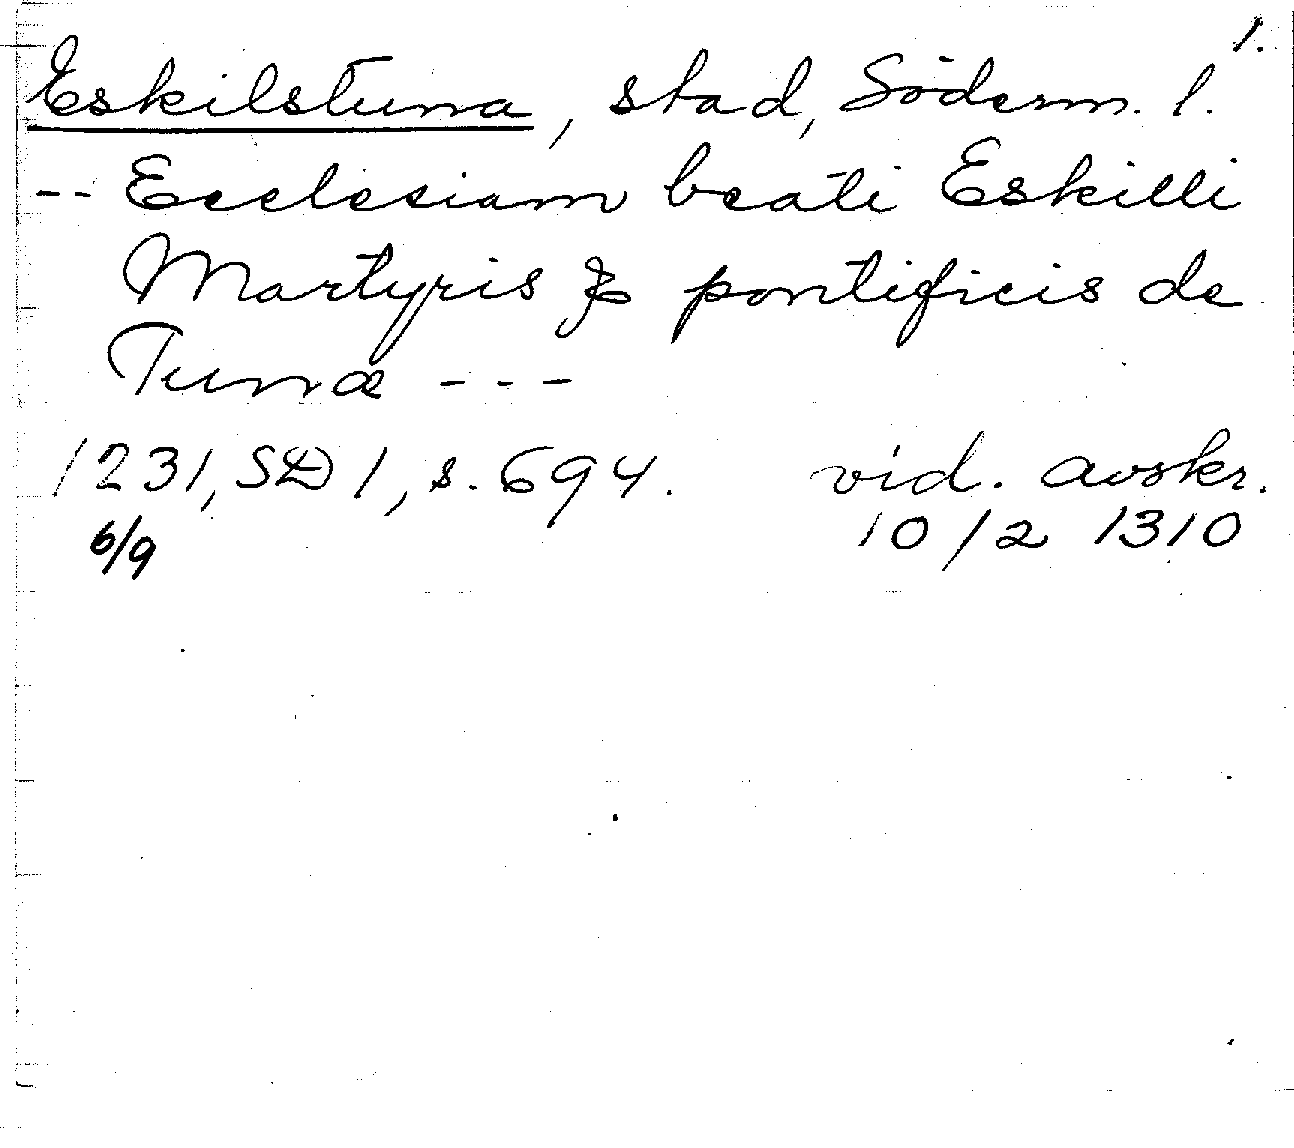 1.
Eskilstuna, stad, Söderm. l.
-- Ecclesiam beati Eskilli
Martyris & pontificis de
Tunæ ---
1231, SD 1, s. 694. vid. avskr.
6/9 10/2 1310